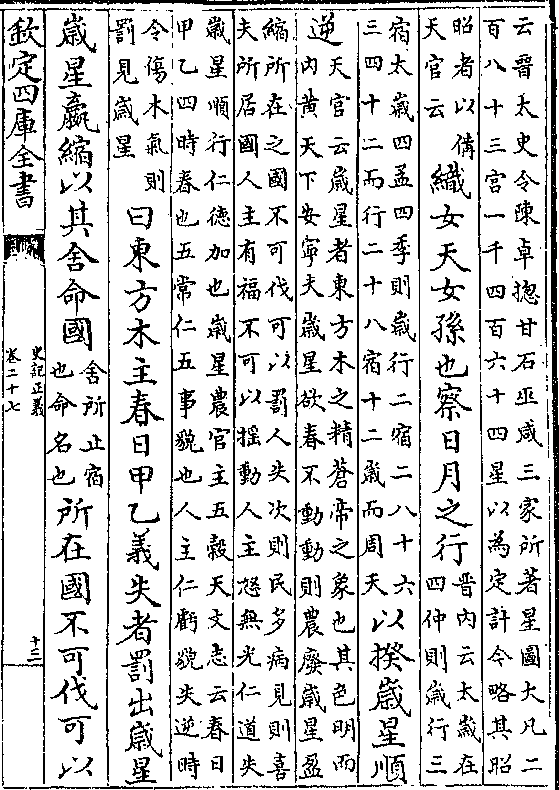 云晋太史令陳卓揔甘石巫咸三家所著星圖大凡二
百八十三宫一千四百六十四星以為定計今略其昭
昭者以俻
天官云
織女天女孫也察日月之行
晋内云太歳在
四仲則歳行三
宿太歳四孟四季則歳行二宿二八十六
三四十二而行二十八宿十二歳而周天
以揆歳星順
逆
天官云歳星者東方木之精蒼帝之象也其色明而
内黄天下安寧夫歳星欲春不動動則農廢歳星盈
縮所在之國不可伐可以罰人失次則民多病見則喜
夫所居國人主有福不可以揺動人主怒無光仁道失
歳星順行仁德加也歳星農官主五穀天文志云春日
甲乙四時春也五常仁五事貌也人主仁虧貌失逆時
令傷木氣則
罰見歳星
曰東方木主春日甲乙義失者罰出歳星
歳星贏縮以其舍命國
舍所止宿
也命名也
所在國不可伐可以
欽定四庫全書
史記正義
卷二十七
十二